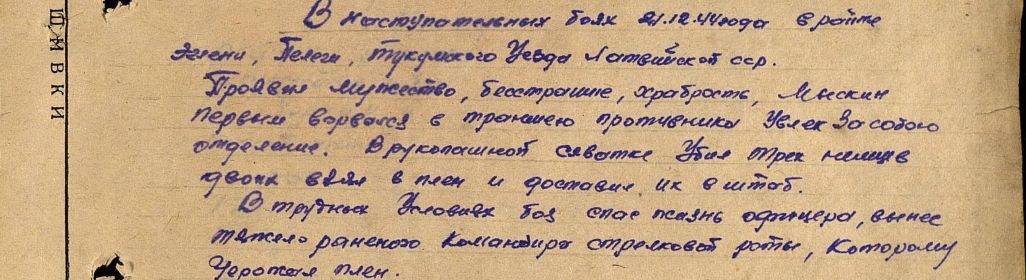 В наступательных боях 21.12.44 года в районе
Эзени, Пелеги, Тукумского Уезда Латвийской сср.
Проявил мужество, бесстрашие, храбрость, Мыскин
Первым ворвался в траншею противника Увлек За собою
отделение. В рукопашной схватке Убил трех немцев
двоих взял в плен и доставил их в штаб.
В трудных Условиях боя спас жизнь офицера, вынес
тяжело раненого Командира стрелковой роты, Которому
Угрожал плен.
ШИВКИ